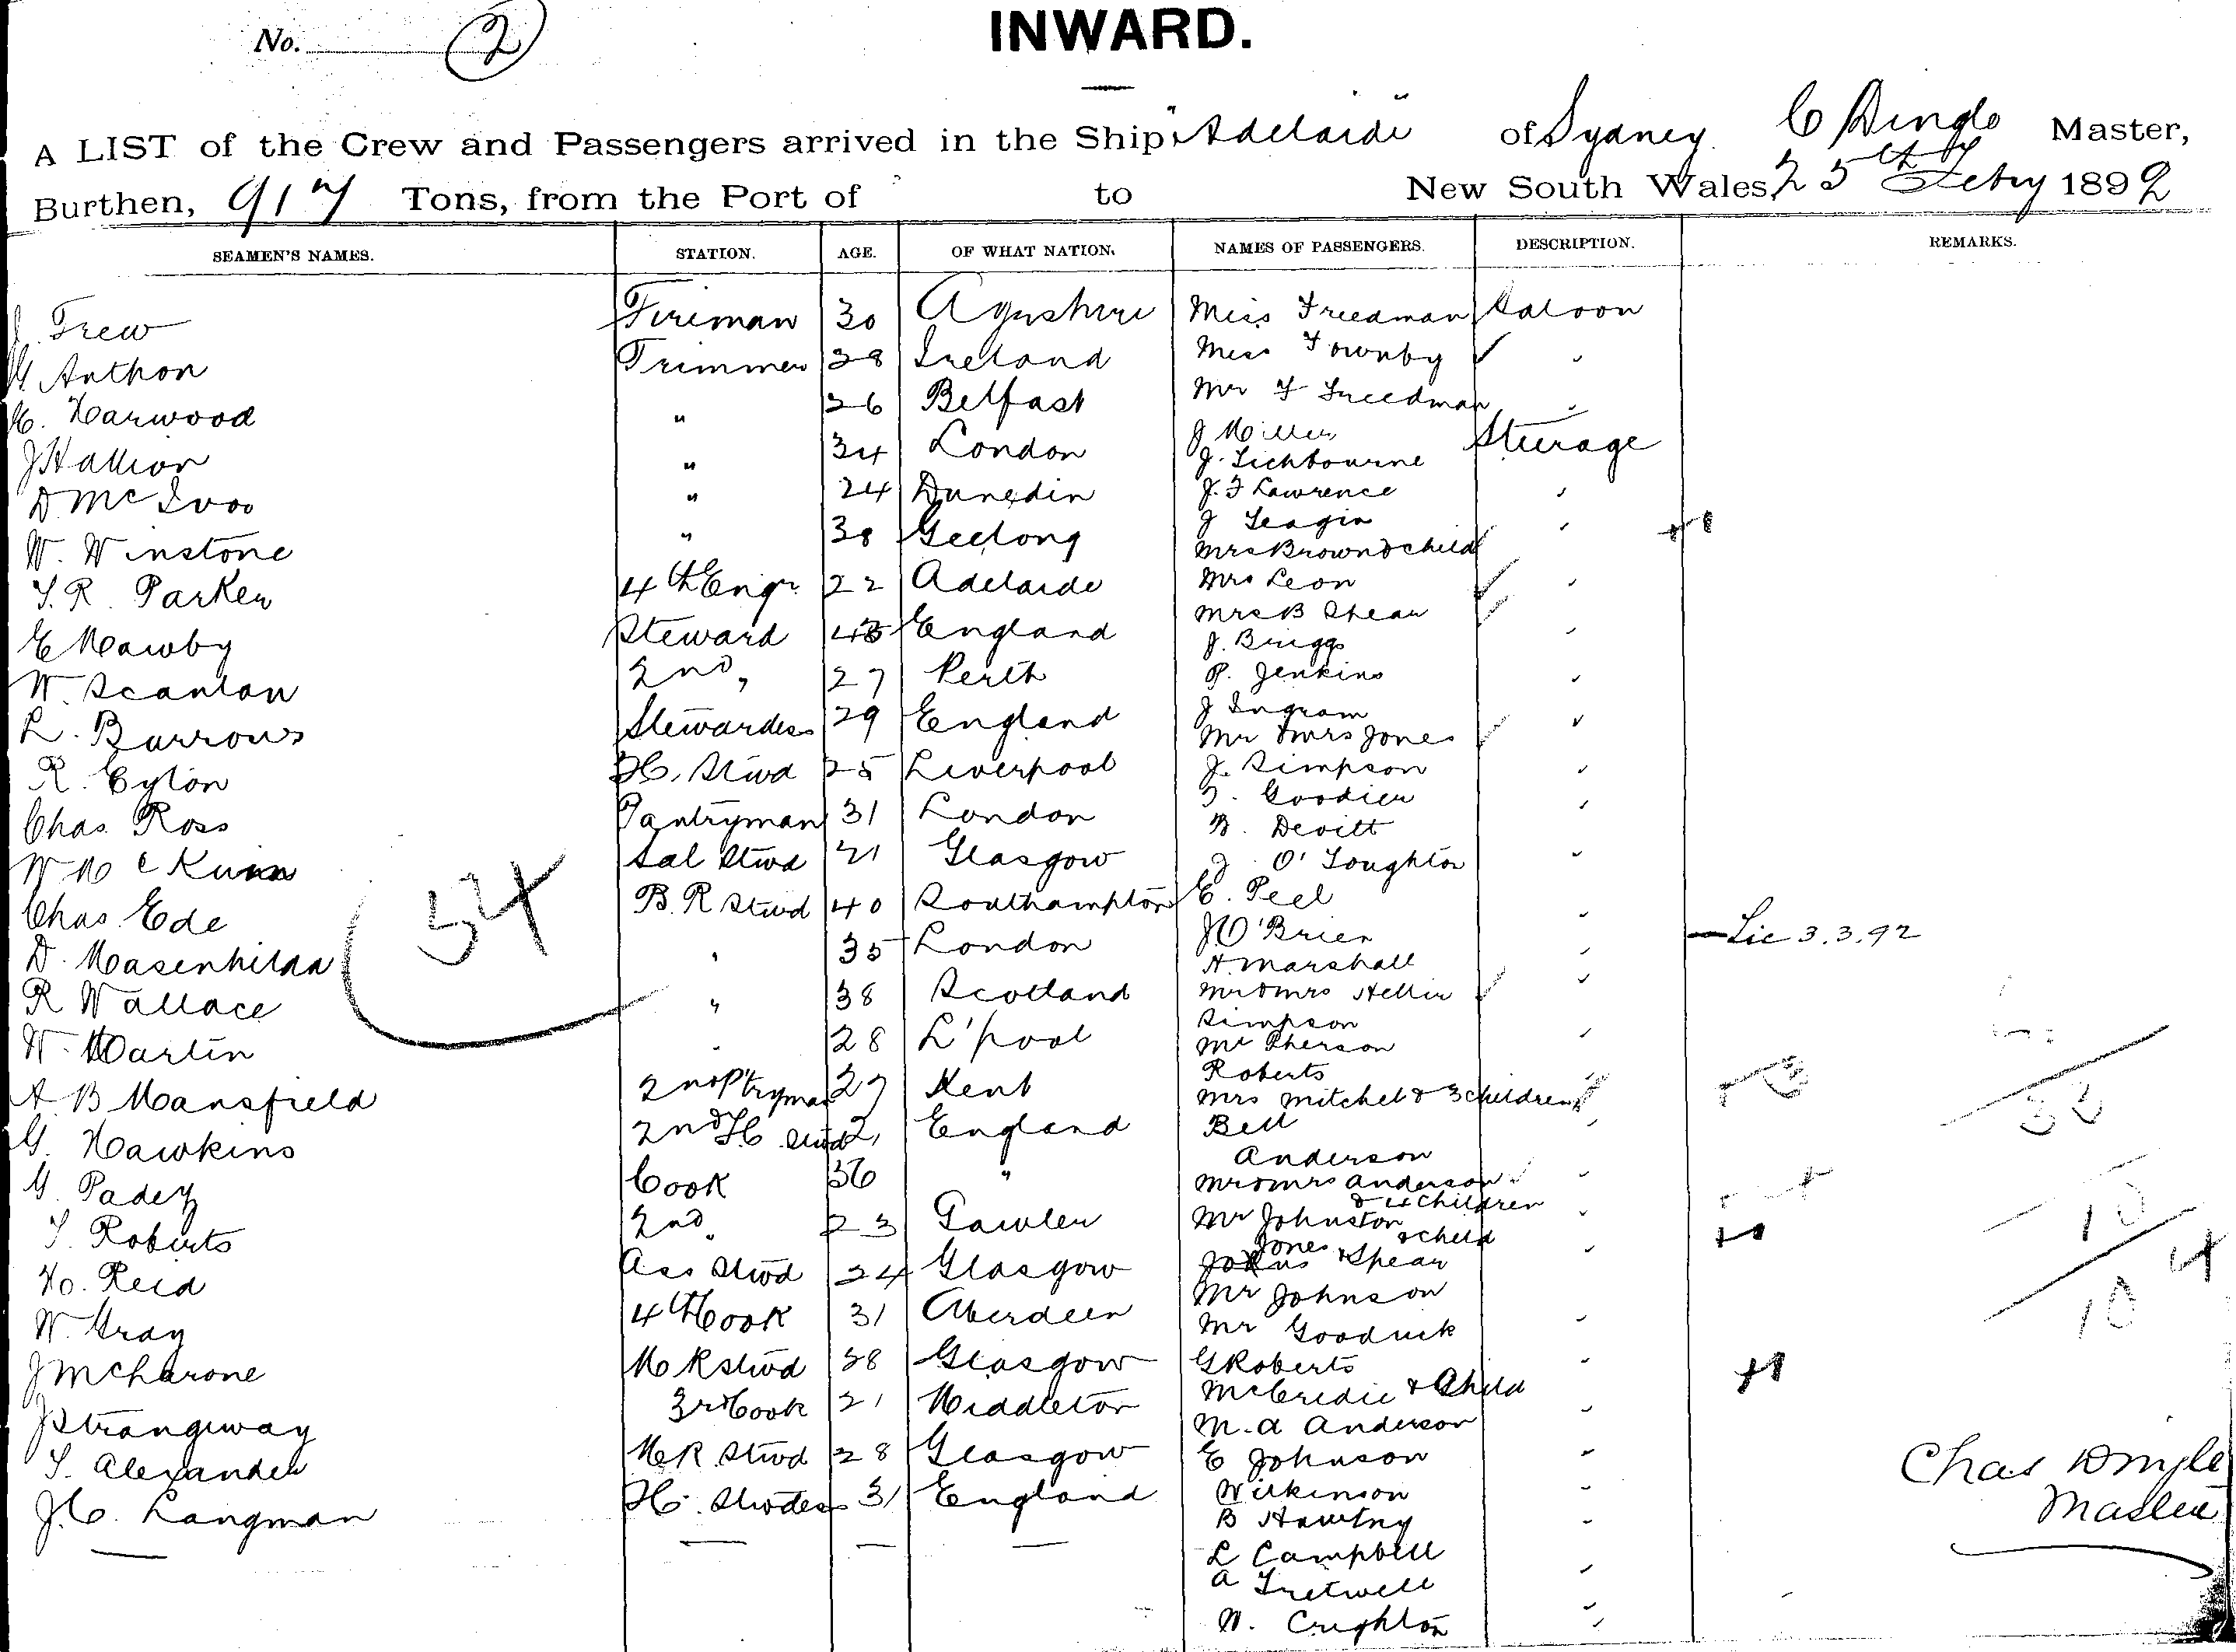 No. 2
INWARD.
A LIST of the Crew and Passengers arrived in the Ship "Adelaide" of Sydney C Dingle Master,
Burthen, 917 Tons, from the Port of to New South Wales, 25th Febry 1892
SEAMEN'S NAMES. STATION. AGE. OF WHAT NATION. NAMES OF PASSENGERS. DESCRIPTION. REMARKS.
J. Frew Fireman 30 Miss Freedman Saloon
Anthon Trimmer 28 Ireland Miss Townby "
H. Harwood " 26 Belfast Mr F Freedman "
J Hallion " 34 London J Miller Steerage
J. Lichbourne
D McIvor " 24 Dunedin J. F Lawrence "
W. Winstone " 38 Geelong J Seagin "
Mrs Brown & child +1
T. R. Parker 4th Engr 22 Adelaide Mrs Leon "
Mrs B Shear
E Mawby Steward England J. Briggs "
W. Scanlan 2nd " 27 Perth P. Jenkins "
L. Burrows Stewardess 29 England J Ingram
Mr & Mrs Jones "
R. Eylon F.C. Stwd 25 Liverpool J. Simpson "
Chas. Ross Pantryman 31 London T. Goodier "
B. Devitt
W McKinn Sal Stwd 21 Glasgow J O'Loughlin "
Chas. Ede B. R Stwd 40 Southampton E. Peel "
54
D. " 35 London J O'Brien " Lie 3.3.92
A. Marshall
R Wallace " 38 Scotland Mr & Mrs Hellier "
Simpson
W. Martin " 28 L'pool McPherson "
A B Mansfield 2nd Ptryman 27 Kent Roberts
Mrs Mitchel & 3 children +3
33
G. Hawkins 2nd F.C. Stwd 21 England Bell "
Anderson
G. Padey Cook 36 " Mr & Mrs Anderson "
& 4 children +
T. Roberts 2nd " 23 Gawler Mr Johnston & child " +1
10
Jones & Shear
H. Reid Ass Stwd 24 Glasgow Mr Johnson 4
W. Gray 4th Cook 31 Aberdeen Mr Gooduck " 10
J McCharone M R Stwd 28 Glasgow G Roberts "
McCredie & Child +1
J Strangway 3rd Cook 21 Middleton M. A Anderson "
T. Alexander M. R. Stwd 28 Glasgow E Johnson " Chas Dingle
J. C. Langman F.C. Stwdess 31 England Wilkinson " Master
B Hawtry "
L Campbell
A Fretwell "
W. Crighton "